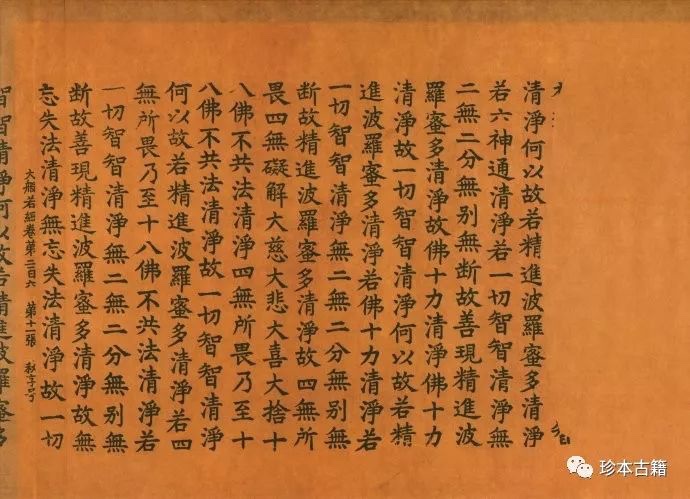 清淨何以故若精進波羅蜜多清淨
若六神通清淨若一切智智清淨無
二無二分無别無斷故善現精進波
羅蜜多清淨故佛十力清淨佛十力
清淨故一切智智清淨何以故若精
進波羅蜜多清淨若佛十力清淨若
一切智智清淨無二無二分無别無
斷故精進波羅蜜多清淨故四無所
畏四無礙解大慈大悲大喜大捨十
八佛不共法清淨四無所畏乃至十
八佛不共法清淨故一切智智清淨
何以故若精進波羅蜜多清淨若四
無所畏乃至十八佛不共法清淨若
一切智智清淨無二無二分無别無
斷故善現精進波羅蜜多清淨故無
忘失法清淨無忘失法清淨故一切
大般若經卷第二百六 第十一張 秋字号
智智清淨何以故若精進波羅蜜多
珍本古籍